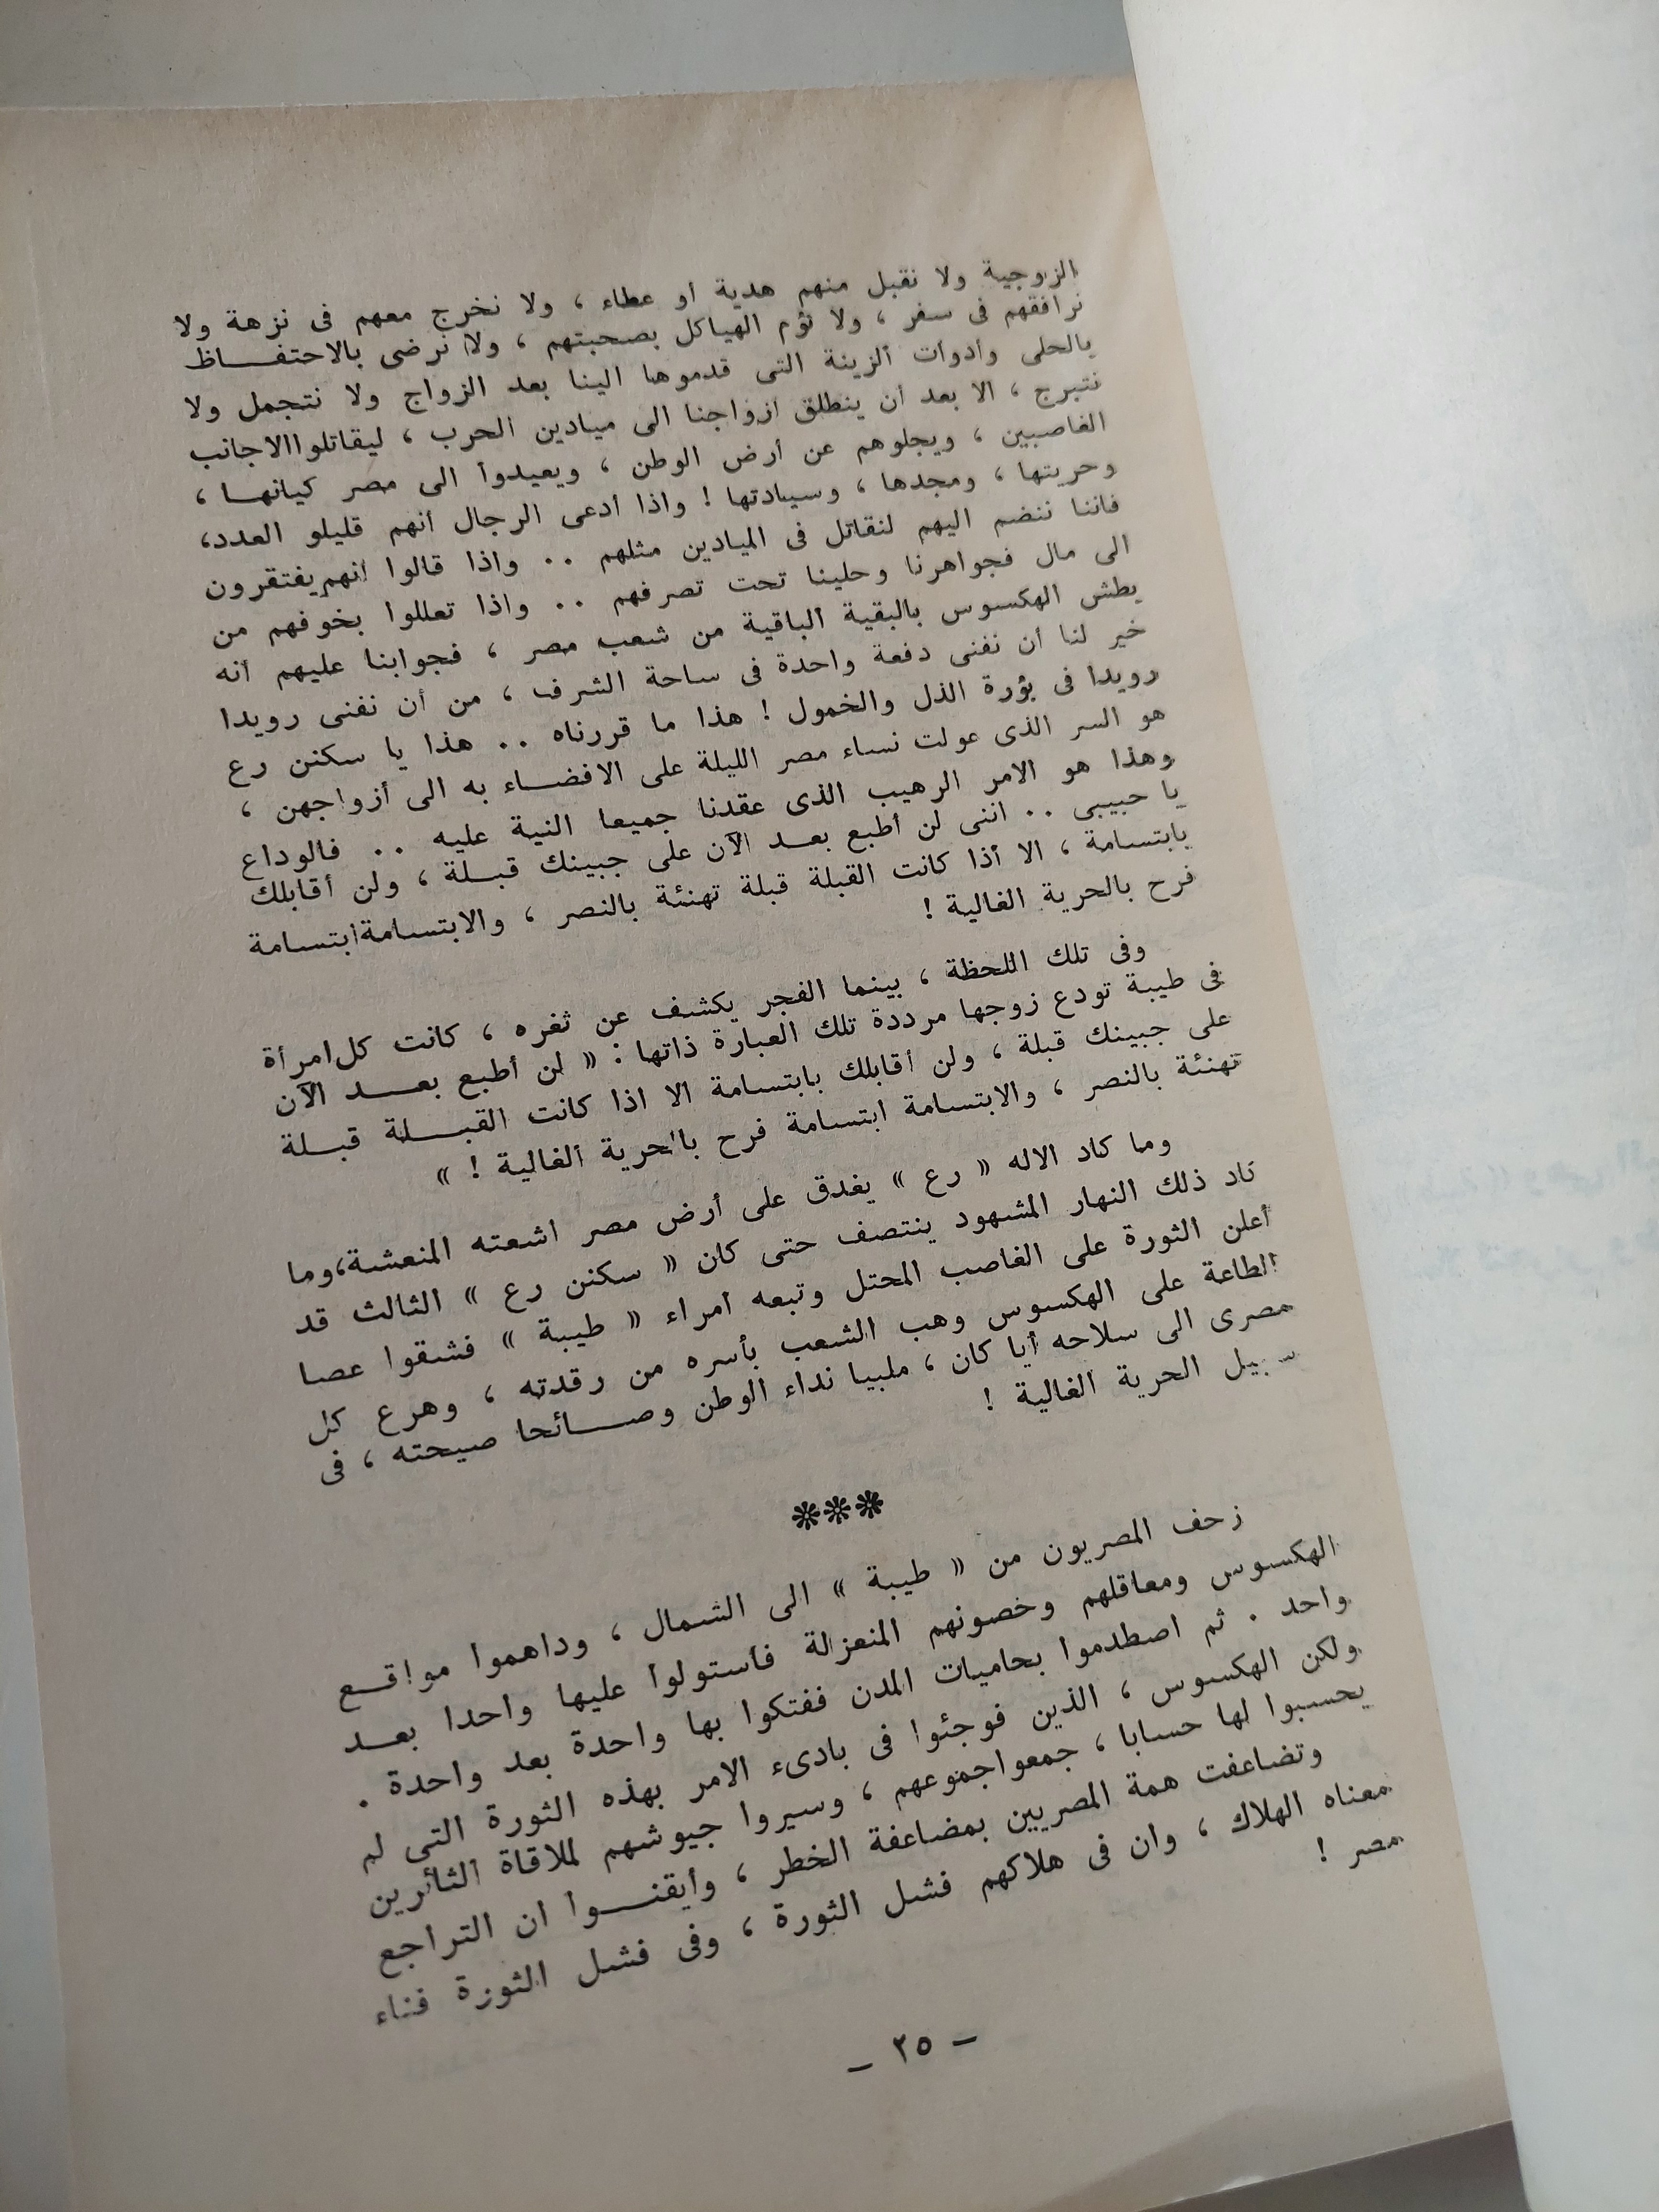 الزوجية ولا نقبل منهم هدية أو عطاء ، ولا نخرج معهم فى نزهة ولا
نرافقهم فى سفر ، ولا نؤم الهياكل بصحبتهم ، ولا نرضى بالاحتفـــاظ
بالحلى وأدوات الزينة التى قدموها الينا بعد الزواج ولا نتجمل ولا
نتبرج ، الا بعد أن ينطلق أزواجنا الى ميادين الحرب ، ليقاتلوا الاجانب
الغاصبين ، ويجلوهم عن أرض الوطن ، ويعيدوا الى مصر كيانهـا ،
وحريتها ، ومجدها ، وسيادتها ! واذا أدعى الرجال أنهم قليلو العدد،
فاننا ننضم اليهم لنقاتل فى الميادين مثلهم .. واذا قالوا انهم يفتقرون
الى مال فجواهرنا وحلينا تحت تصرفهم .. واذا تعللوا بخوفهم من
بطش الهكسوس بالبقية الباقية من شعب مصر ، فجوابنا عليهم أنه
خير لنا أن نفنى دفعة واحدة فى ساحة الشرف ، من أن نفنى رويدا
رويدا فى بؤرة الذل والخمول ! هذا ما قررناه .. هذا يا سكنن رع
هو السر الذى عولت نساء مصر الليلة على الافضــاء به الى أزواجهن ،
وهذا هو الامر الرهيب الذى عقدنا جميعا النية عليه .. فالوداع
يا حبيبى .. اننى لن أطبع بعــد الآن على جبينك قبــلة ، ولن أقابلك
بابتسامة ، الا أذا كانت القبلة قبلة تهنئة بالنصر ، والابتسامة ابتسامة
فرح بالحرية الغالية !
وفى تلك اللحظة ، بينما الفجر يكشف عن ثغره ، كانت كل امرأة
فى طيبة تودع زوجها مرددة تلك العبارة ذاتها : « لن أطبع بعـــد الآن
على جبينك قبلة ، ولن أقابلك بابتسامة الا اذا كانت القبـــلة قبــلة
تهنئة بالنصر ، والابتسامة ابتسامة فرح بالحرية الغالية ! »
وما كاد الاله « رع » يغدق على أرض مصر اشعته المنعشة، وما
كاد ذلك النهار المشهود ينتصف حتى كان « سكنن رع » الثالث قد
أعلن الثورة على الغاصب المحتل وتبعه أمراء « طيبة » فشقوا عصا
الطاعة على الهكسوس وهب الشعب بأسره من رقدته ، وهرع كل
مصرى الى سلاحه أيا كان ، ملبيا نداء الوطن وصـــائحا صيحته ، فى
سبيل الحرية الغالية !
***
زحف المصريون من « طيبة » الى الشمال ، وداهموا مواقــع
الهكسوس ومعاقلهم وخصونهم المنعزلة فأستولوا عليها واحدا بعــد
واحد . ثم اصطدموا بحاميات المدن ففتكوا بها واحدة بعد واحدة .
ولكن الهكسوس ، الذين فوجئوا فى بادىء الامر بهذه الثورة التى لم
يحسبوا لها حسابا ، جمعوا جموعهم ، وسيروا جيوشهم لملاقاة الثائرين
وتضاعفت همة المصريين بمضاعفة الخطر ، وأيقنـــوا ان التراجع
معناه الهلاك ، وان فى هلاكهم فشل الثورة ، وفى فشل الثورة فناء
مصر !
– ٢٥ –